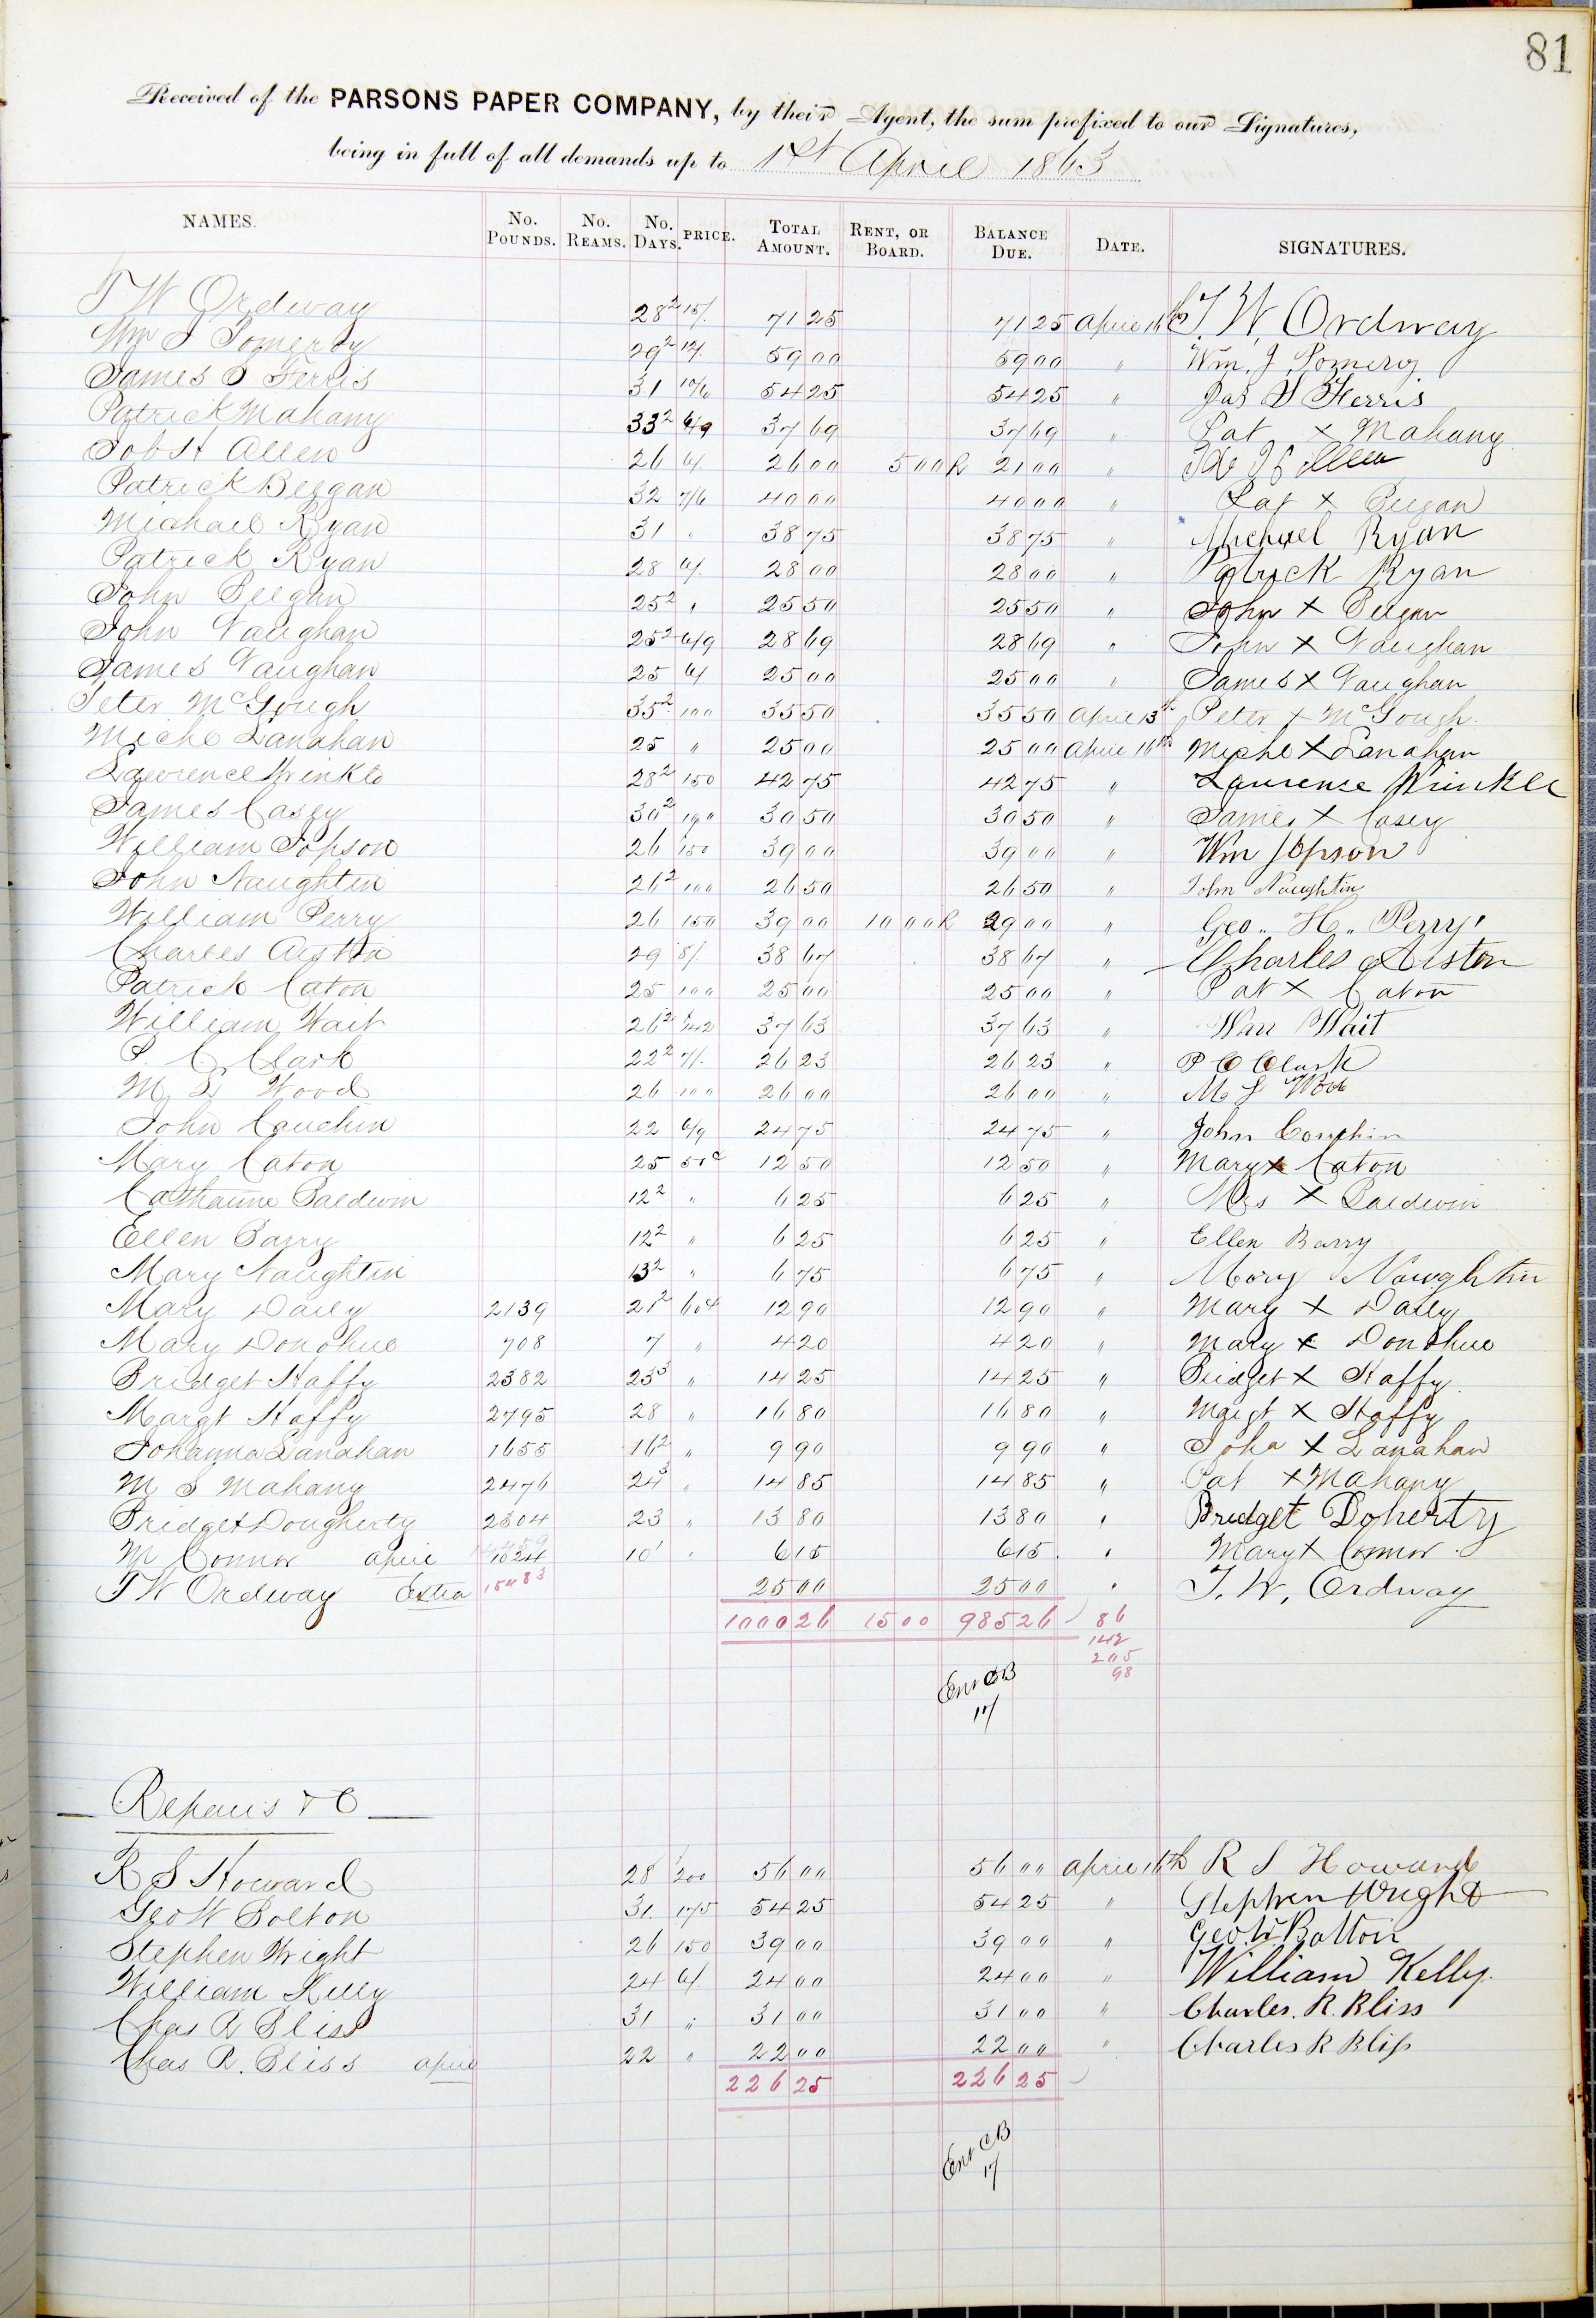 81
Received of the PARSONS PAPER COMPANY, by their Agent, the sum prefixed to our Signatures,
being in full of all demands up to 1st April 1863
NAMES. No. POUNDS. No. REAMS. No. DAYS. PRICE. TOTAL AMOUNT. RENT, OR BOARD. BALANCE DUE. DATE. SIGNATURES.
T W Ordway 28² 15/. 71 25 71 25 April 16th T. W. Ordway
Wm J Pomeroy 29² 12/. 59 00 59 00 " Wm. J. Pomeroy
James S Ferris 31 10/6 54 25 54 25 " Jas S Ferris
Patrick Mahany 33² 6/9 37 69 37 69 " Pat x Mahany
Job H Allen 26 6/. 26 00 5 00 R 21 00 " Allen
Patrick Beegan 32 7/6 40 00 40 00 " Pat x Beegan
Michael Ryan 31 " 38 75 38 75 " Michael Ryan
Patrick Ryan 28 6/. 28 00 28 00 " Patrick Ryan
John Beegan 25² " 25 50 25 50 " John x Beegan
John Vaughan 25² 6/9 28 69 28 69 " John x Vaughan
James Vaughan 25 6/ 25 00 25 00 " James x Vaughan
Peter McGough 35² 100 35 50 35 50 April 13th Peter x McGough.
Michl Lanahan 25 " 25 00 25 00 April 16th Michl x Lanahan
Lawrence Winkle 28² 150 42 75 42 75 " Laurense Winkle
James Casey 30² 100 30 50 30 50 " James x Casey
William Jopson 26 150 39 00 39 00 " Wm Jopson
John Naughtin 26² 100 26 50 26 50 " John Naughtin
William Perry 26 150 39 00 10 00 R 29 00 " Geo. H. Perry
Charles Austin 29 8/. 38 67 38 67 " Charles Aiston
Patrick Caton 25 100 25 00 25 00 " Pat x Caton
William Wait 26² 142 37 63 37 63 " Wm Wait
P. C Clark 22² 7/. 26 23 26 23 " P C Clark
M L Wood 26 100 26 00 26 00 " M L Wood
John Couchin 22 6/9 24 75 24 75 " John Couchin
Mary Caton 25 50c 12 50 12 50 " Mary x Caton
Catharine Baldwin 12² " 6 25 6 25 " Mrs x Baldwin
Ellen Barry 12² " 6 25 6 25 " Ellen Barry
Mary Naughtin 13² " 6 75 6 75 " Mary Naughtin
Mary Daily 2139 21² 60c 12 90 12 90 " Mary x Daily
Mary Donohue 708 7 " 4 20 4 20 " Mary x Donohue
Bridget Haffy 2382 23³ " 14 25 14 25 " Bridget x Haffy
Margt Haffy 2795 28 " 16 80 16 80 " Margt x Haffy
Johanna Lanahan 1655 16² " 9 90 9 90 " Joha x Lanahan
M S Mahany 2476 24³ " 14 85 14 85 " Pat x Mahany
Bridget Dougherty 2304 23 " 13 80 13 80 " Bridget Doherty
M Connor April 1024 10¹ " 6 15 6 15 " Mary x Connor
T W Ordway Extra 15483 25 00 25 00 " T. W. Ordway
1000 26 15 00 985 26 86
142
205
98
Ent CB
17/
Repairs & C
R S Howard 28 200 56 00 56 00 April 16th R S Howard
Geo W Bolton 31 175 54 25 54 25 " Stephen Wright
Stephen Wright 26 150 39 00 39 00 " Geo. W Bolton
William Kelly 24 6/. 24 00 24 00 " William Kelly.
Chas R Bliss 31 " 31 00 31 00 " Charles. R. Bliss
Chas R. Bliss April 22 " 22 00 22 00 " Charles R Bliss
226 25 226 25
Ent CB
17/